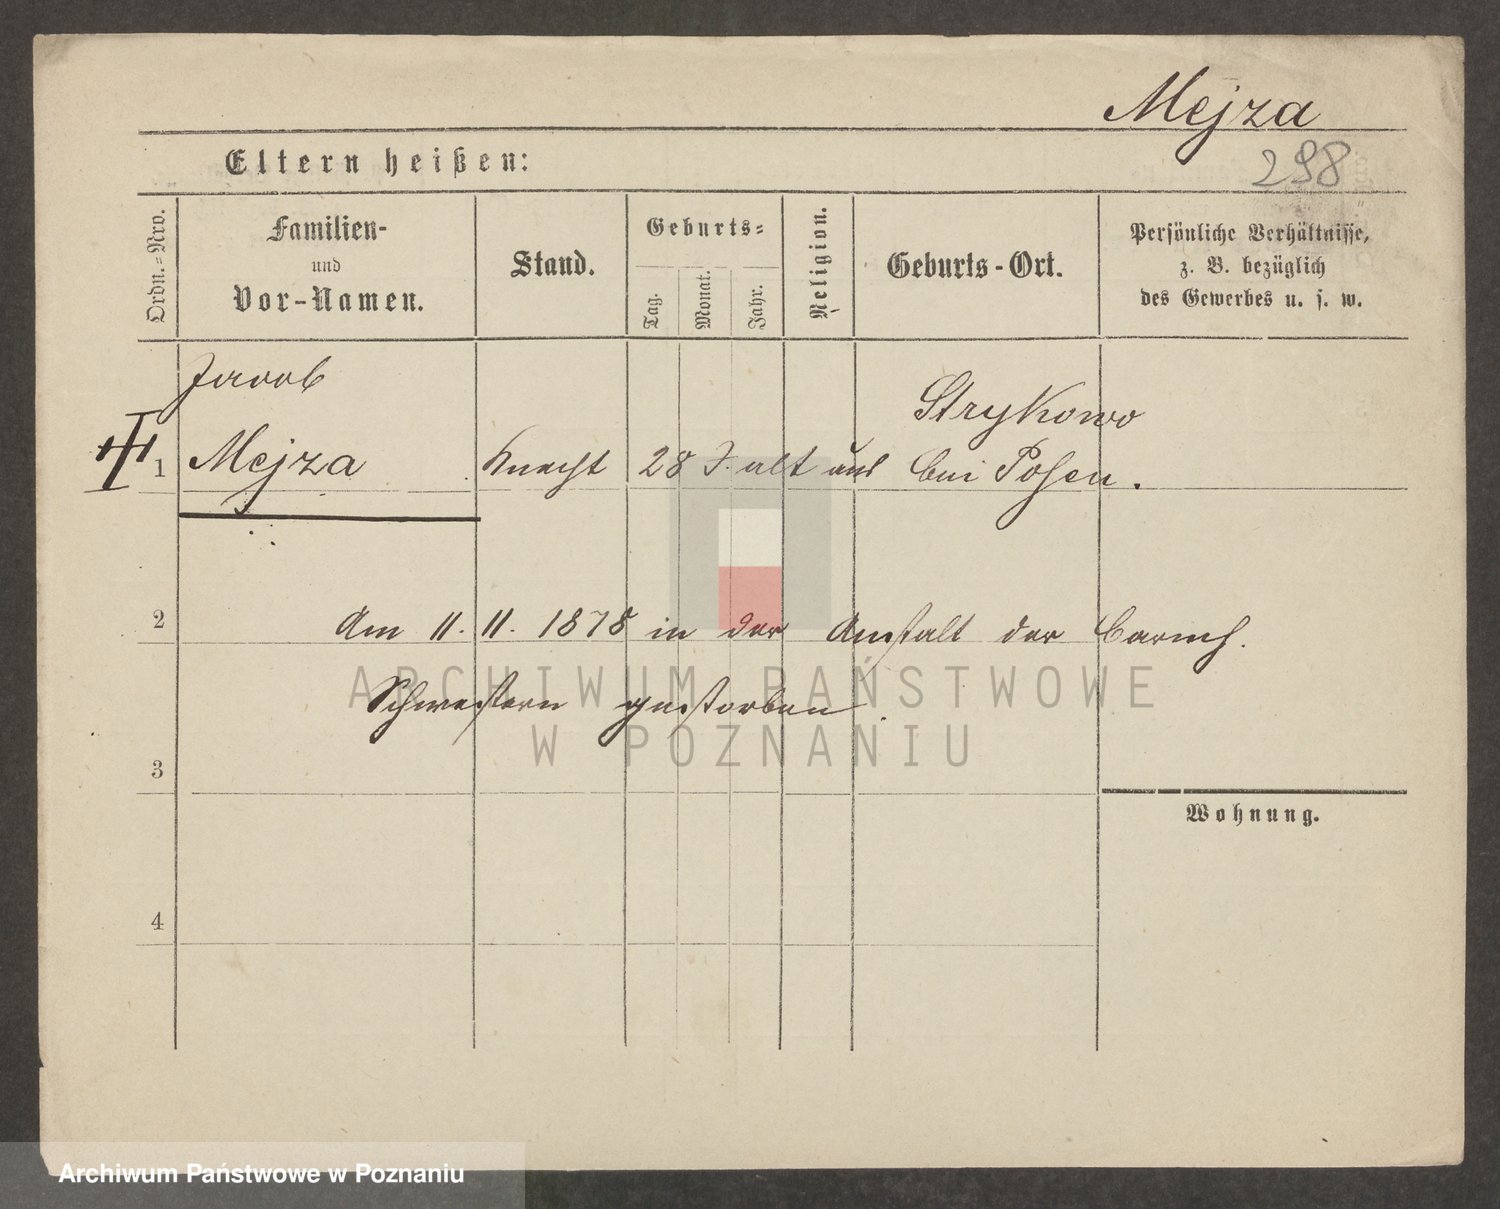 Mejza
298
Eltern heißen:
Ordn.-Nro.
Familien-
und
Vor-Namen.
Stand.
Geburts-
Tag.
Monat.
Jahr.
Religion.
Geburts-Ort.
Persönliche Verhältnisse,
z. B. bezüglich
des Gewerbes u. s. w.
Jacob
Strykowo
1 Mejza Knecht 28 J. alt aus bei Posen.
2 Am 11. 11. 1878 in der Anstalt der barmh.
Schwestern gestorben.
ARCHIWUM PAŃSTWOWE
W POZNANIU
3
Wohnung.
4
Archiwum Państwowe w Poznaniu